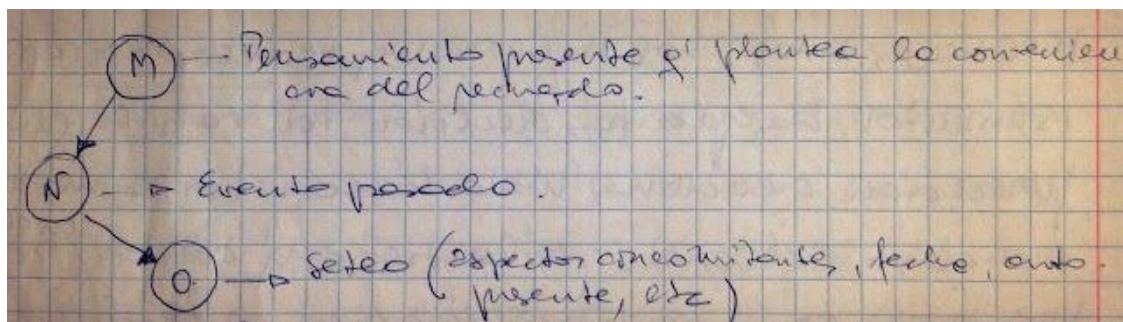 M — Pensamiento presente q' plantea la convenien
cia del recuerdo.
N → Evento pasado.
O. → Seteo (aspectos concomitantes, fecha, auto-
presente, etc)